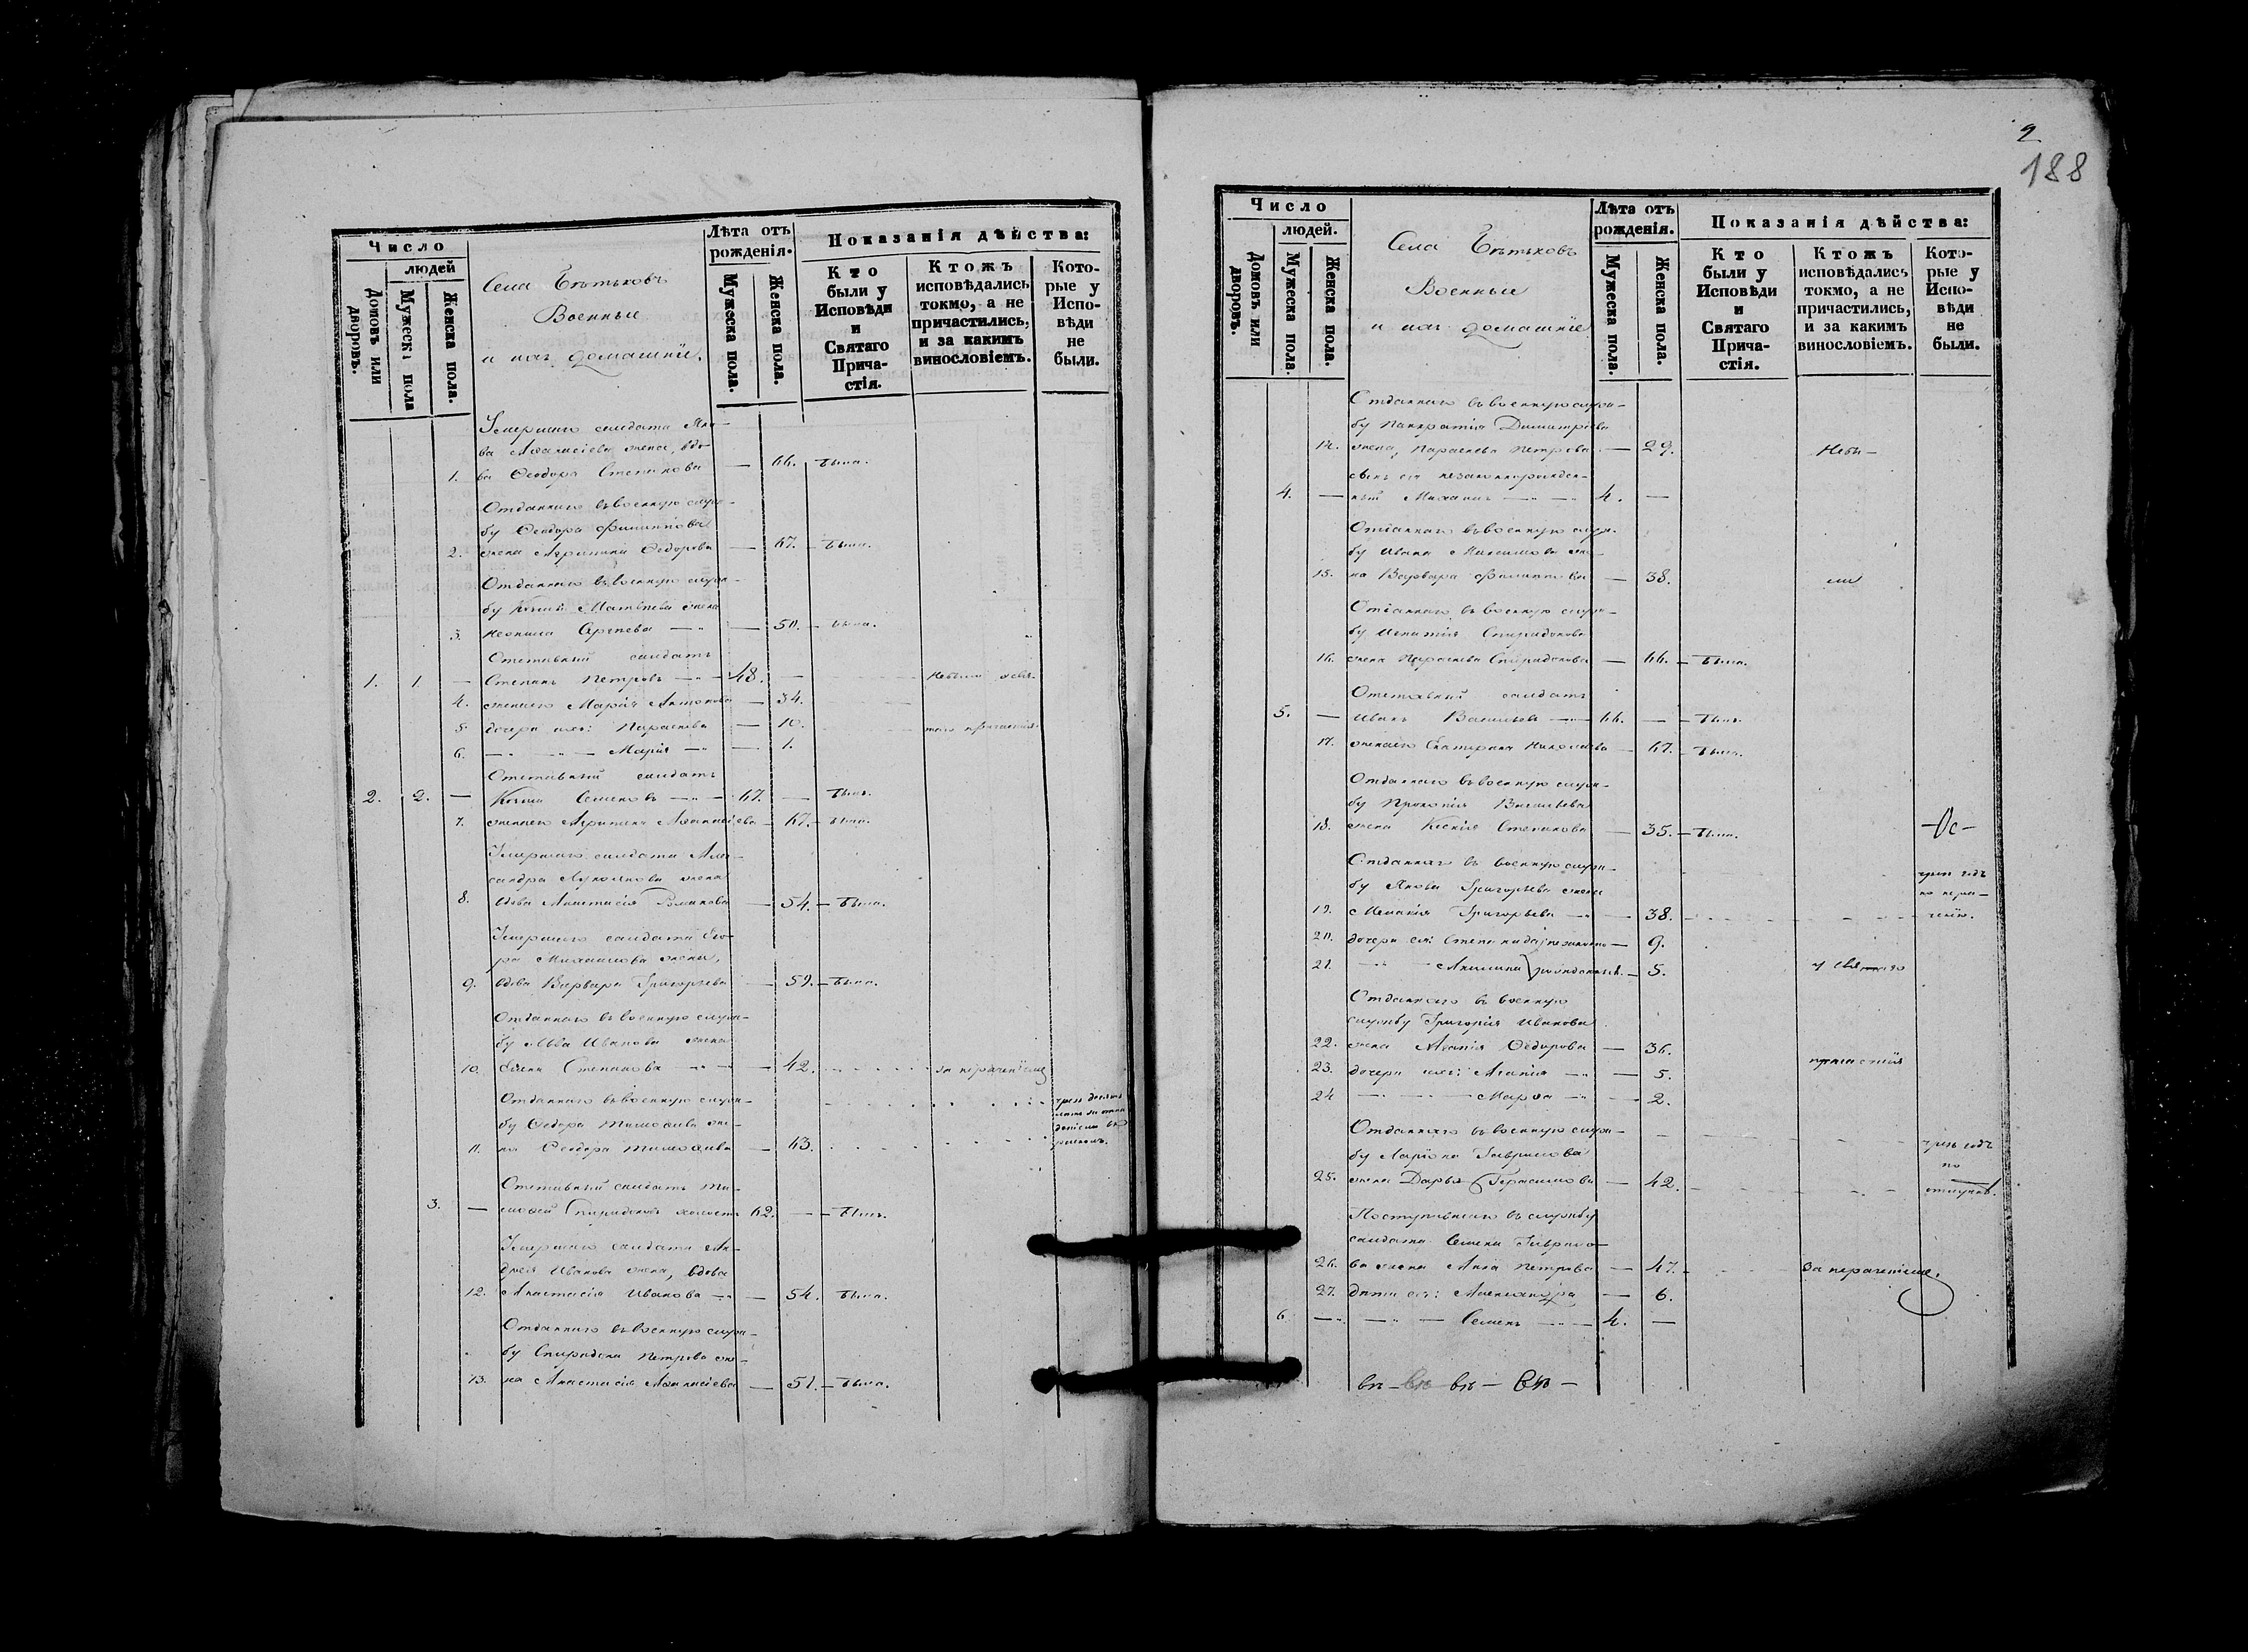 Число
людей
Домовъ или дворовъ.
Мужеска пола
Женска пола.
Села
Военные
и ихъ домашніе.
Лѣта отъ рожденія.
Мужеска пола.
Женска пола.
Показанія дѣйства:
Кто были у Исповѣди и Святаго Прича-стія.
Ктожъ исповѣдались токмо, а не причастились, и за какимъ винословіемъ.
Кото-рые у Испо-вѣди не были.
Умершаго солдата Яко-
ва Аѳанасіева жена, вдо-
1. ва Ѳеодора Степанова — 66. Была.
Отданнаго въ военную служ-
бу Ѳеодора Филиппова
2. жена Агрипина Ѳедорова — 67. Была.
Отданнаго въ военную служ-
бу Козмы Матвѣева жена
3. Неонила Сергѣева — 50. была.
Отставный солдатъ
1. 1. — Степанъ Петровъ — 48. —
4. жена его Марія Антонова — 34.
5. дочери ихъ: Параскева — 10.
6. — Марія — 1.
Отставный солдатъ
2. 2. — Козма Семеновъ — 67. — Былъ.
7. жена его Агрипина Аѳанасіева — 67. — была.
Умершаго солдата Алек-
сандра Лукоянова жена
8. вдова Анастасія Романова — 54. — Была.
Умершаго солдата Его-
ра Михайлова жена,
9. вдова Варвара Григорьева — 59. — Была.
Отданнаго въ военную служ-
бу Льва Иванова жена
10. Елена Степанова — 42. за нерачениемъ
Отданнаго въ военную служ-
бу Ѳедора Тимоѳеева же-
11. на Ѳеодора Тимоѳеева — 63.
Отставный солдатъ Ти-
3. — моѳей Спиридоновъ холостъ 62. — — Былъ.
Умершаго солдата Ан-
дрея Иванова жена, вдова
12. Анастасія Иванова — 54. Была.
Отданнаго въ военную служ-
бу Спиридона Петрова же-
13. на Анастасія Аѳанасіева — 51. — Была.
2
188
Число
людей.
Домовъ или дворовъ.
Мужеска пола.
Женска пола.
Села
Военные
и ихъ домашніе
Лѣта отъ рожденія.
Мужеска пола.
Женска пола.
Показанія дѣйства:
Кто были у Исповѣди и Святаго Прича-стія.
Ктожъ исповѣдались токмо, а не причастились, и за какимъ винословіемъ.
Кото-рые у Испо-вѣди не были.
Отданнаго въ военную служ-
бу Панкратія Димитріева
14. жена, Параскева Петрова — 29. Небы-
сынъ ея незаконнорожден-
4. — ный Михаилъ — 4. —
Отданнаго въ военную служ-
бу Ивана Максимова же-
15. на Варвара Филиппова — 38. ли
Отданнаго въ военную служ-
бу Игнатія Спиридонова
16. жена Параскева Спиридонова — 66. — Была.
Отставный солдатъ
5. — Иванъ Васильевъ — 66. — — Былъ.
17. жена его Екатерина Николаева — 67. — Была.
Отданнаго въ военную служ-
бу Прокопія Васильева
18. жена Ксенія Степанова — 35. — Была.
Отданнаго въ военную служ-
бу Якова Григорьева жена
19. Меланія Григорьева — 38. чрезъ годъ по нера-ченію.
20. дочери ея: Степанида незаконно- 9.
21. — Акилина рожденныя. — 5. у свя
Отданнаго въ военную
службу Григорія Иванова
22. жена Агапія Ѳедорова — 36.
23. дочери ихъ: Агапія — 5. причастія
24 — Марѳа — 2.
Отданнаго въ военную служ-
бу Ларіона Гаврилова
25. жена Дарья Герасимова — 42. чрезъ годъ по
Поступившаго въ службу
солдата Семена Гаврило-
26. ва жена Анна Петрова — 47. За нерачениемъ.
27. дѣти ея: Александра — 6.
6 — Семенъ — 4. —